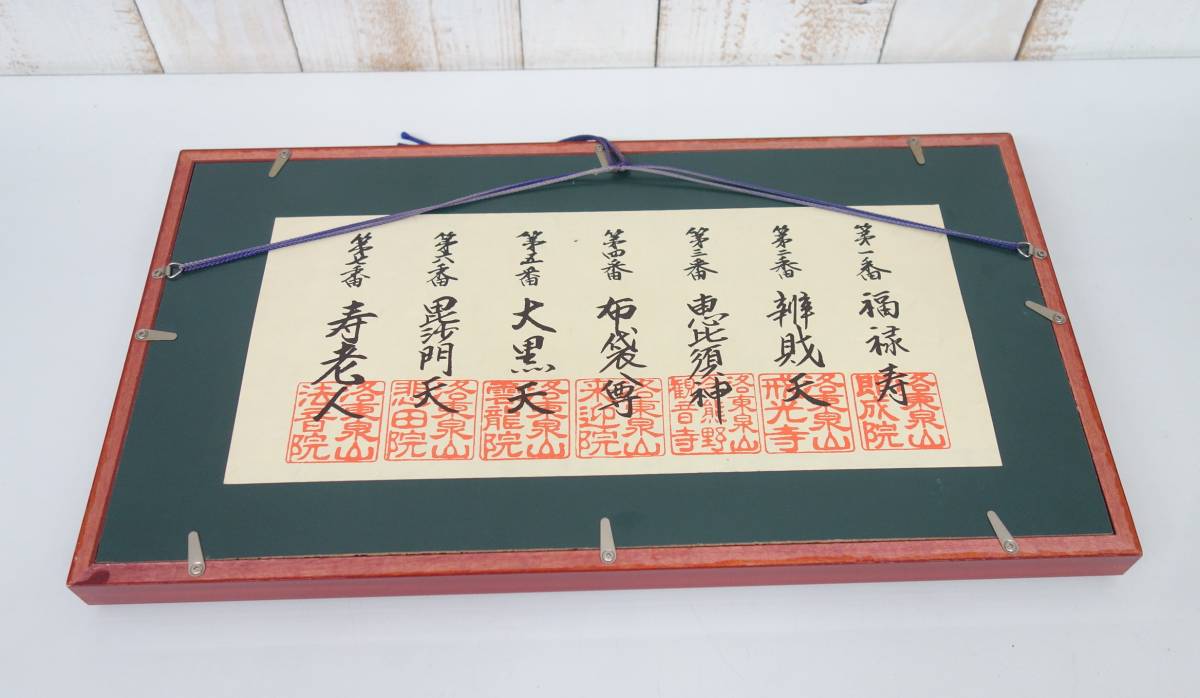 第一番 福禄寿
洛東泉山 即成院
第二番 辨財天
洛東泉山 戒光寺
第三番 恵比須神
洛東泉山 今熊野観音寺
第四番 布袋尊
洛東泉山 来迎院
第五番 大黒天
洛東泉山 雲龍院
第六番 毘沙門天
洛東泉山 悲田院
第七番 寿老人
洛東泉山 法音院